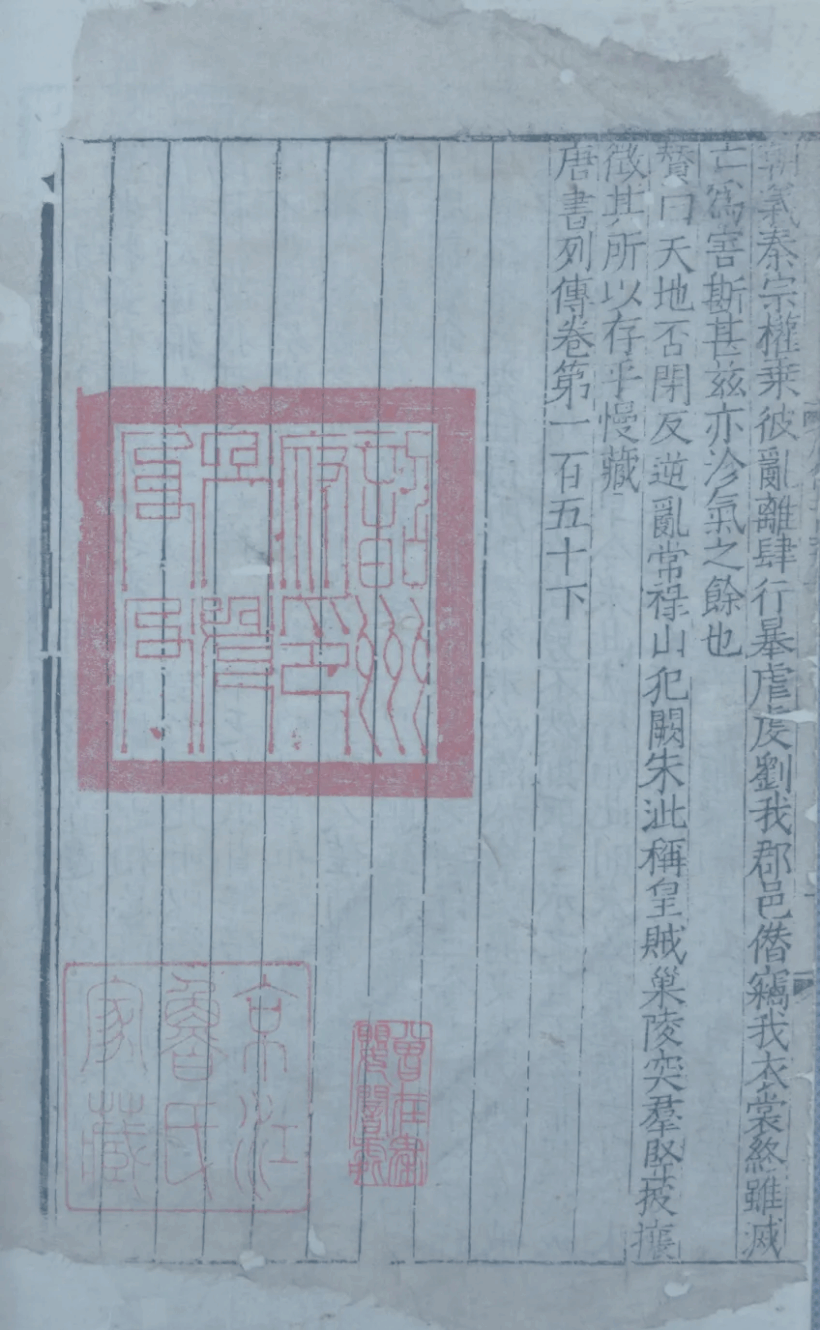 朝氣秦宗權乗彼亂離肆行暴虐虔劉我郡邑僭竊我衣裳終雖滅
亡為害斯甚茲亦沴氣之餘也
贊曰天地否閉反逆亂常祿山犯闕朱泚稱皇賊巢陵突羣竪披攘
徴其所以存乎慢藏
唐書列傳卷第一百五十下
京江
魯氏
家藏